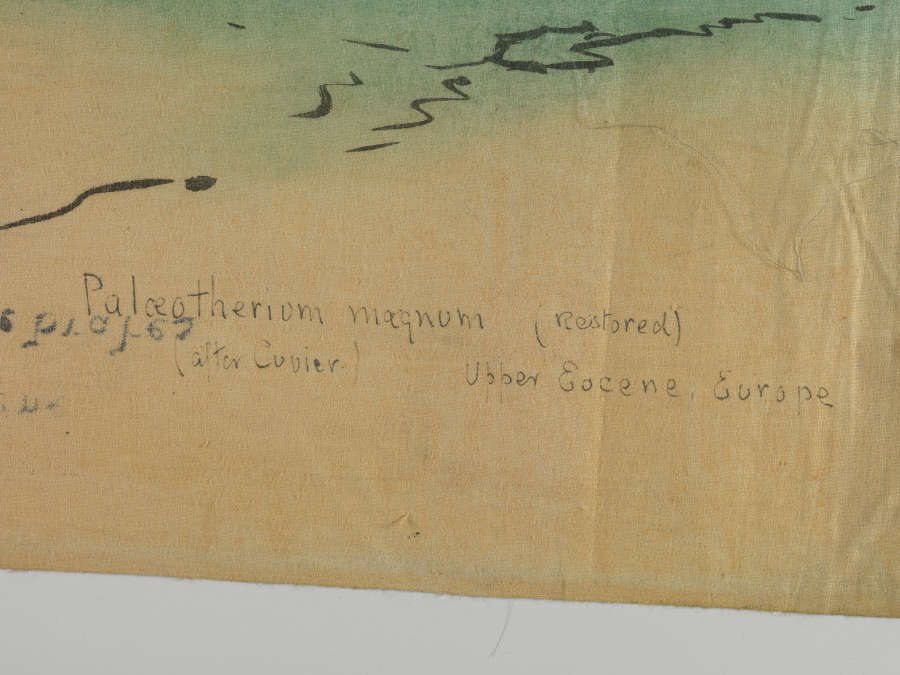 Palæotherium magnum (Restored)
(after Cuvier)
Upper Eocene, Europe